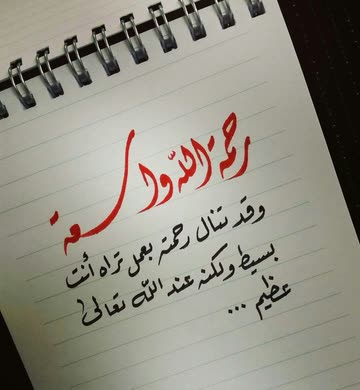 رحمة الله واسعة
وقد تنال رحمته بعمل تراه أنت
بسيط ولكنه عند الله تعالى
عظيم ...